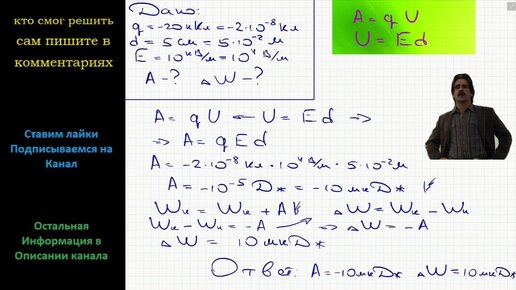 кто смог решить
сам пишите в
комментариях
Ставим лайки
Подписываемся на
Канал
Остальная
Информация в
Описании канала
Дано:
q = -20нКл = -2·10⁻⁸ кл
d = 5 см = 5·10⁻² м
E = 10⁴ В/м = 10⁴ В/м
A - ? ΔW - ?
A = q U
U = E d
A = q U ← U = E d ⇒
⇒ A = q E d
A = -2·10⁻⁸ кл · 10⁴ В/м · 5·10⁻² м
A = -10⁻⁵ Дж = -10 мкДж
Wн = Wк + A ΔW = Wк - Wн
Wк - Wн = -A ⇒ ΔW = -A
ΔW = 10 мкДж
Ответ: A = -10мкДж ΔW = 10мкДж